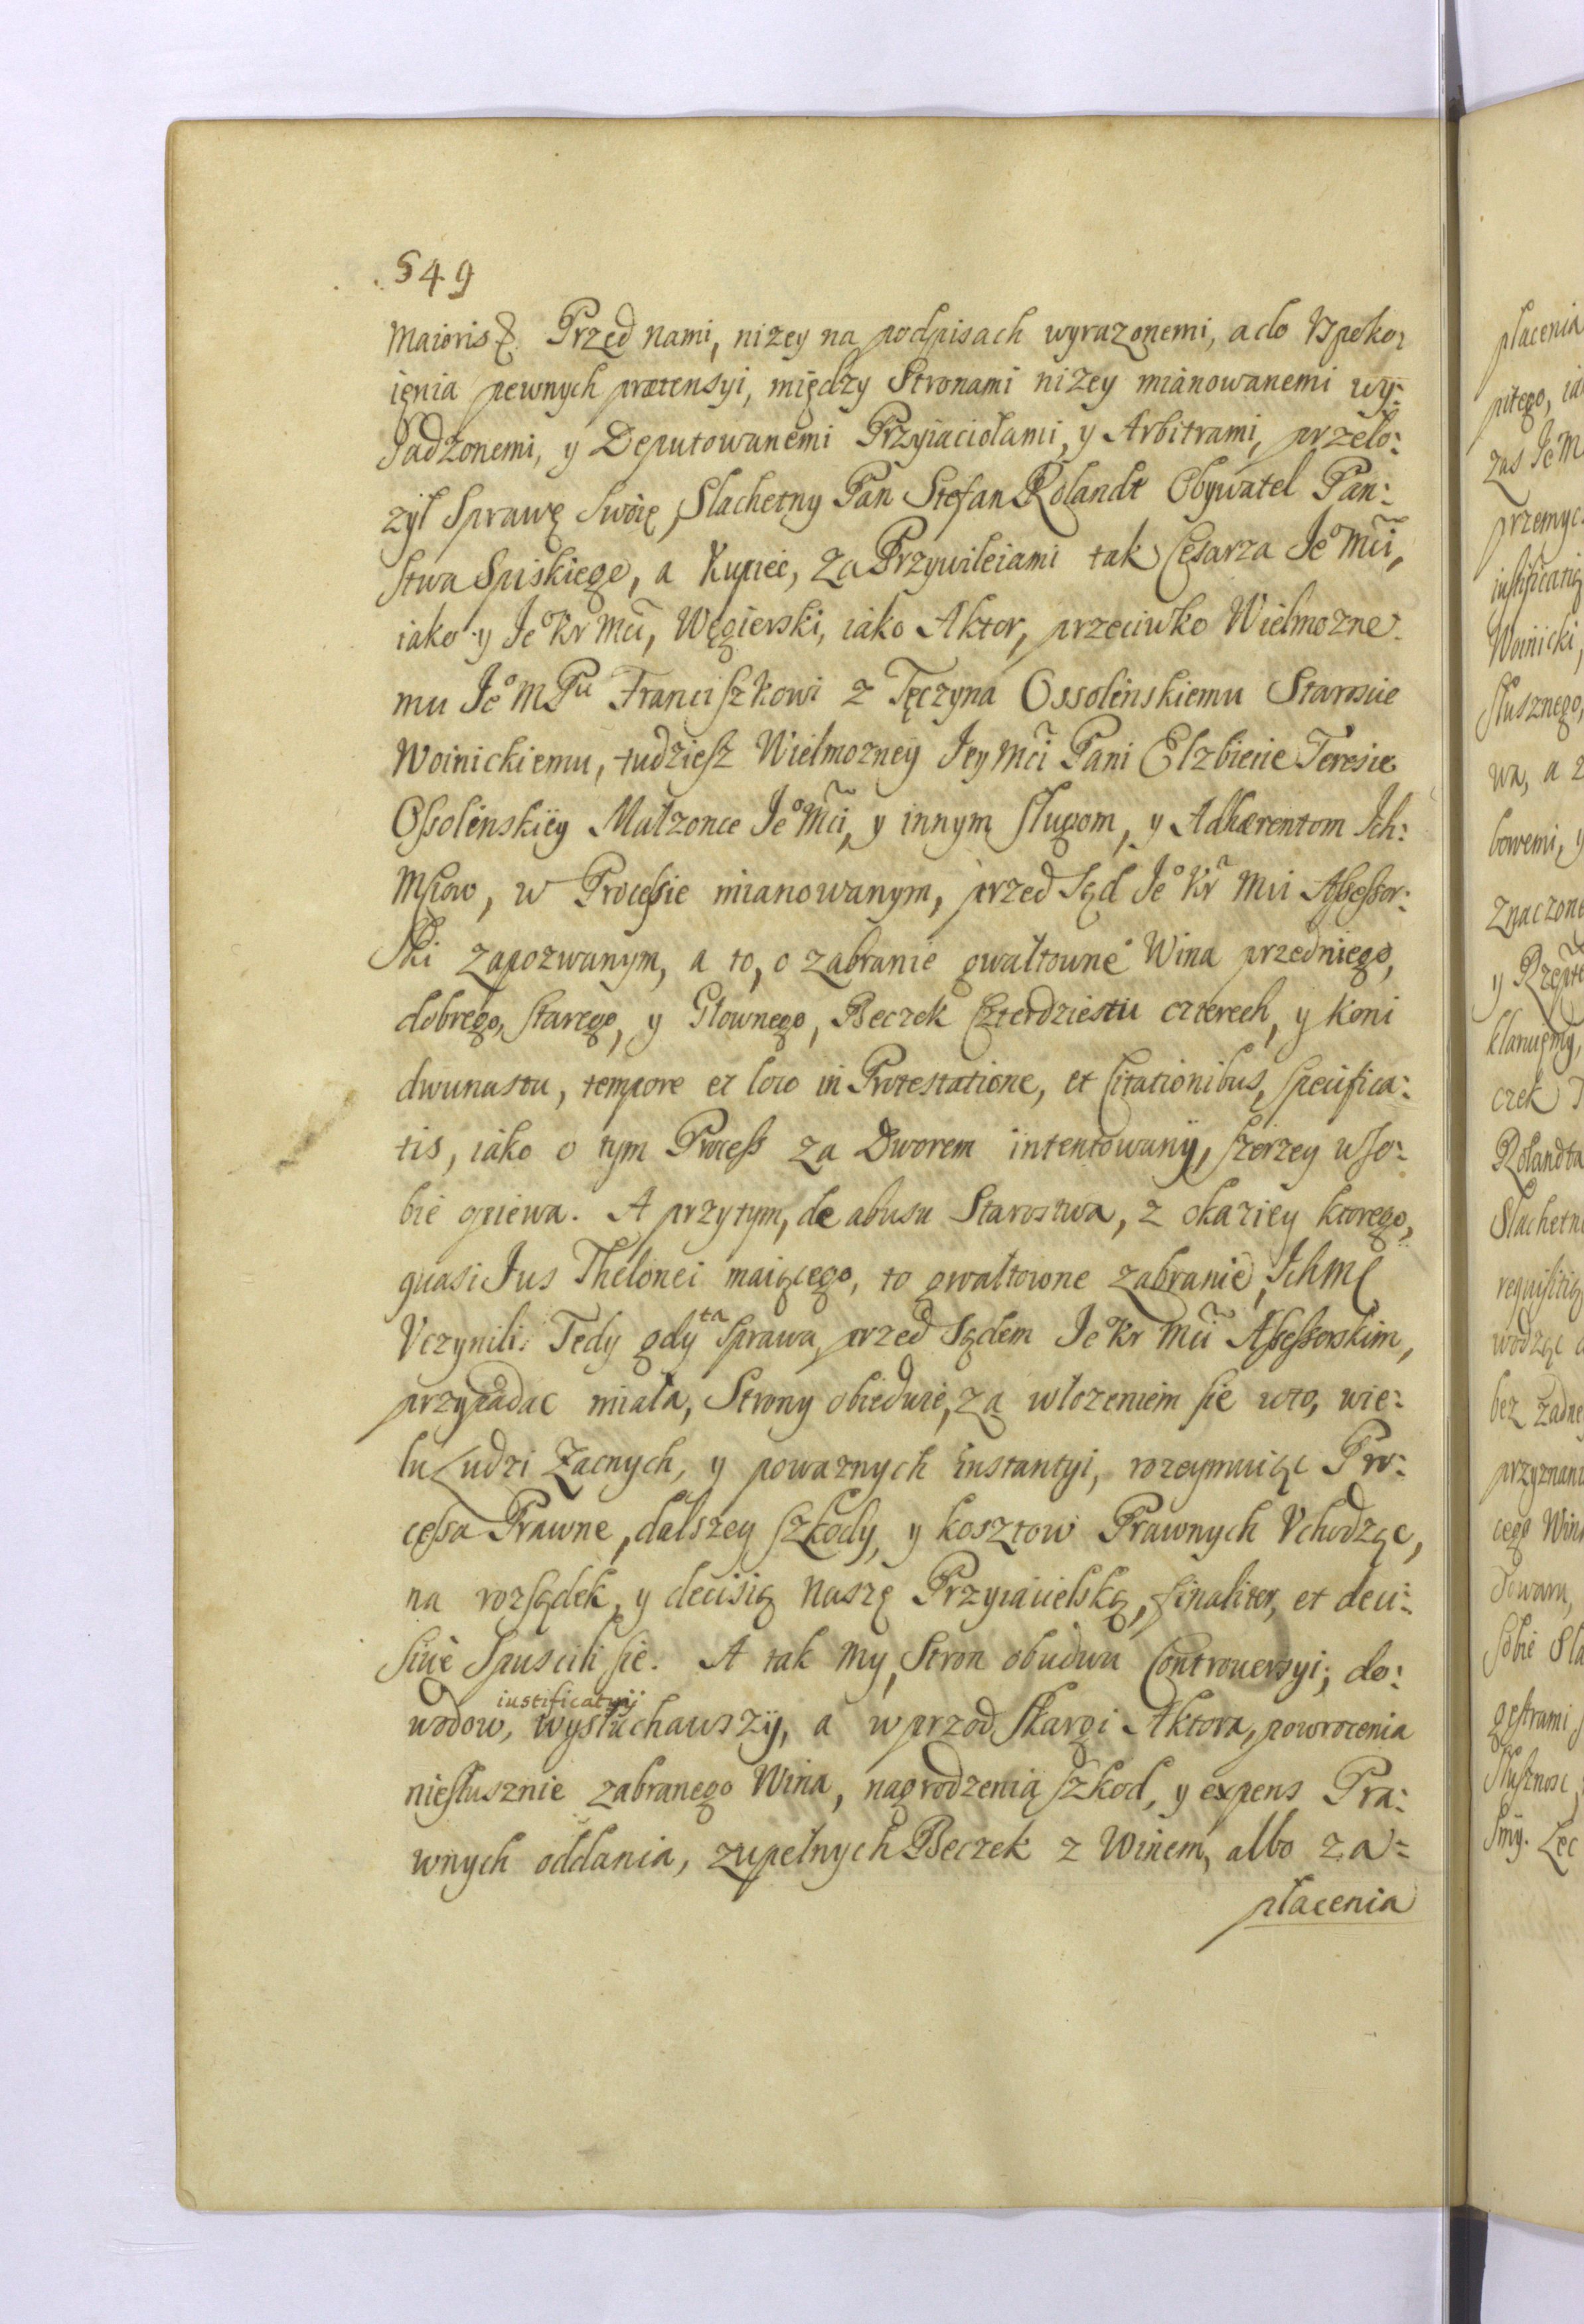 549
Maioris &. Przed nami, nizey na podpisach wyrazonemi, a do Vspoko:
ięnia pewnych prætensyi, między Stronami nizey mianowanemi wy:
sadzonemi, y Deputowanemi Przyiaciołami, y Arbitrami, przeło:
zył Sprawę swoię, Slachetny Pan Stefan Rolandt Obywatel Pan:
stwa Spiskiego, a Kupiec, za Przywileiami tak Cesarza Jeº Mći,
iako y Jeº Kr Mći, Węgierski, iako Aktor, przeciwko Wielmozne:
mu Jeº M Pu Franciszkowi z Tęczyna Ossolinskiemu Staroscie
Woinickiemu, tudziesz Wielmozney Jey Mći Pani Elzbiecie Teresie
Ossolinskiey Małzonce Jeº Mći, y innym sługom, y Adhærentom Ich:
Mściow, w Processie mianowanym, przed Sąd Jeº Kr Mći Assessor:
ski zapozwanym, a to, o zabranie gwałtowne Wina przedniego,
dobrego, starego, y Głownego, Beczek Czterdziestu czterech, y koni
dwunastu, tempore et loco in Protestatione, et Citationibus, specifica:
tis, iako o tym Process za Dworem intentowany, szerzey w so:
bie opiewa. A przytym, de abusu Starostwa, z okaziey ktorego,
quasi Jus Thelonei maiącego, to gwałtowne zabranie, Ich Mć
Vczynili: Tedy gdy ta Sprawa, przed Sądem Jeº Kr Mći Assessorskim,
przypadac miała, Strony obiedwie, za włozeniem sie w to, wie:
lu Ludzi Zacnych, y powaznych instantyi, rozeymuiąc Pro:
cessa Prawne, dalszey szkody, y kosztow Prawnych Vchodząc,
na rozsądek, y decisią naszę Przyiacielską, finaliter, et deci:
siue spuscili sie. A tak my, Stron obudwu Controuersyi, do:
wodow, iustificatyij wysłuchawszy, a wprzod skargi Aktora, powrocenia
niesłusznie zabranego Wina, nagrodzenia szkod, y expens Pra:
wnych oddania, zupełnych Beczek z Winem, albo za:
płacenia